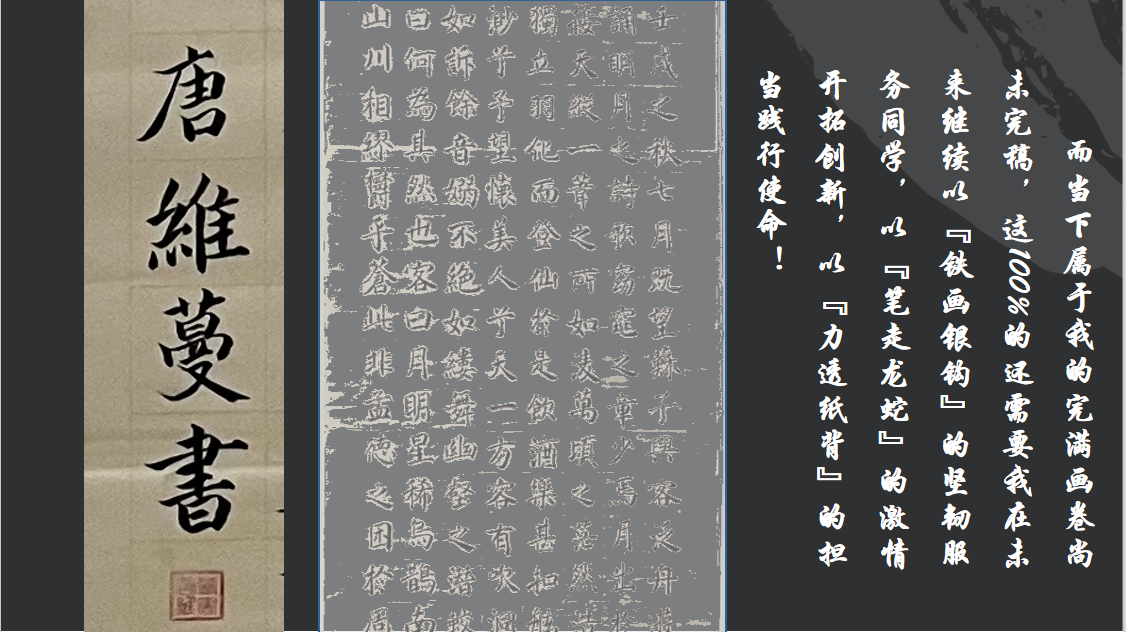 唐維蔓書
壬戌之秋七月既望蘇子與客泛舟
誦明月之詩歌窈窕之章少焉月出於
接天縱一葦之所如凌萬頃之茫然浩
獨立羽化而登仙於是飲酒樂甚扣舷
渺兮予望懷美人兮天一方客有吹洞
如訴餘音嫋不絕如縷舞幽壑之潛蛟
曰何為其然也客曰月明星稀烏鵲南
山川相繆鬱乎蒼此非孟德之困於周
而当下属于我的完满画卷尚
未完稿，这100%的还需要我在未
来继续以『铁画银钩』的坚韧服
务同学，以『笔走龙蛇』的激情
开拓创新，以『力透纸背』的担
当践行使命！